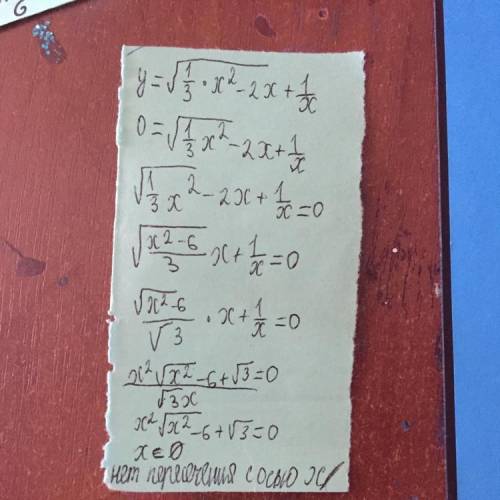 6
y = √(1/3 · x² - 2x) + 1/x
0 = √(1/3 x²) - 2x + 1/x
√(1/3 x²) - 2x + 1/x = 0
√((x² - 6)/3) x + 1/x = 0
(√(x²) - 6)/√3 · x + 1/x = 0
(x² √(x²) - 6 + √3)/(√3x) = 0
x² √(x²) - 6 + √3 = 0
x ∈ ∅
нет пересечения с осью x